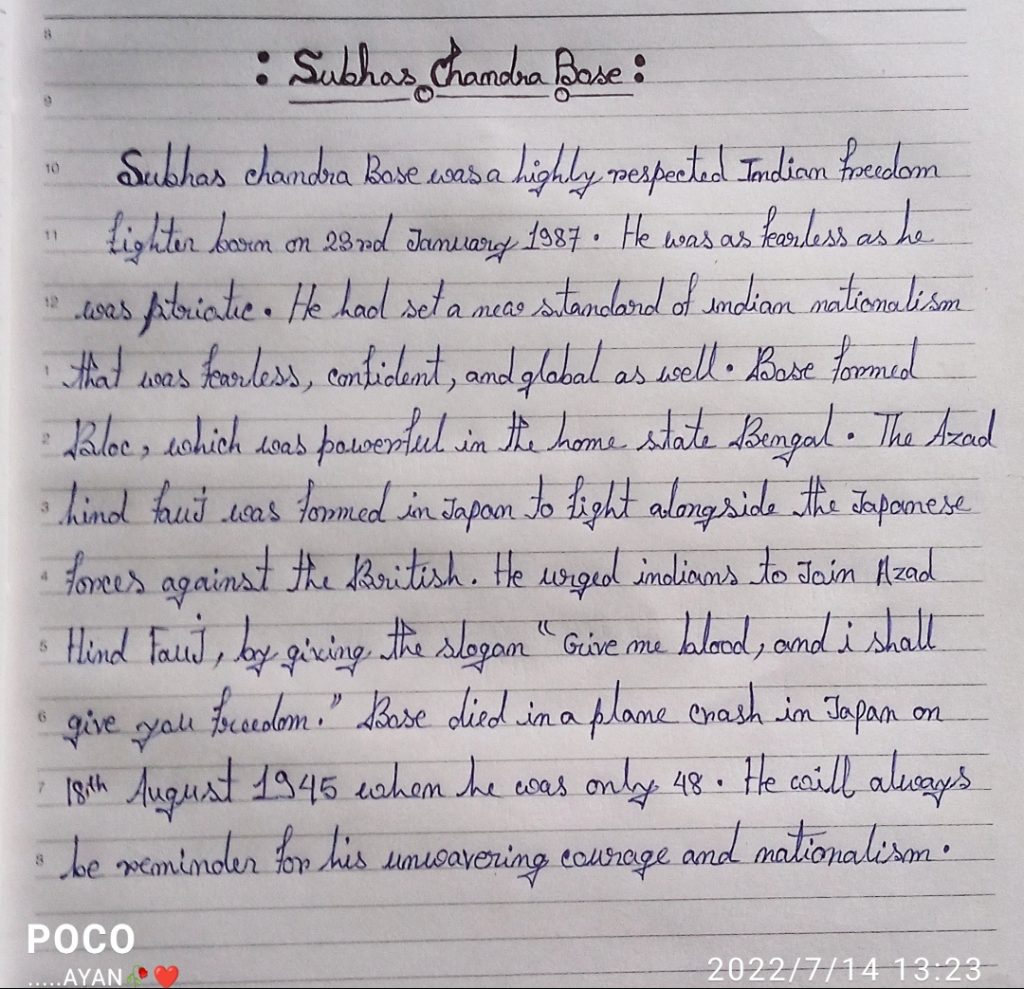 8
: Subhas Chandra Bose :
9
10 Subhas chandra Bose was a highly respected Indian freedom
11 fighter born on 23rd January 1987. He was as fearless as he
12 was ptriatic. He had set a new standard of indian nationalism
1 that was fearless, confident, and global as well. Bose formed
2 Bloc, which was powerful in the home state Bengal. The Azad
3 hind fauj was formed in Japan to fight alongside the Japanese
4 forces against the British. He urged indians to Join Azad
5 Hind Fauj, by giving the slogan "Give me blood, and i shall
6 give you freedom." Bose died in a plane crash in Japan on
7 18th August 1945 when he was only 48. He will always
8 be reminder for his unwavering courage and nationalism.
POCO
.....AYAN🥀❤️
2022/7/14 13:23